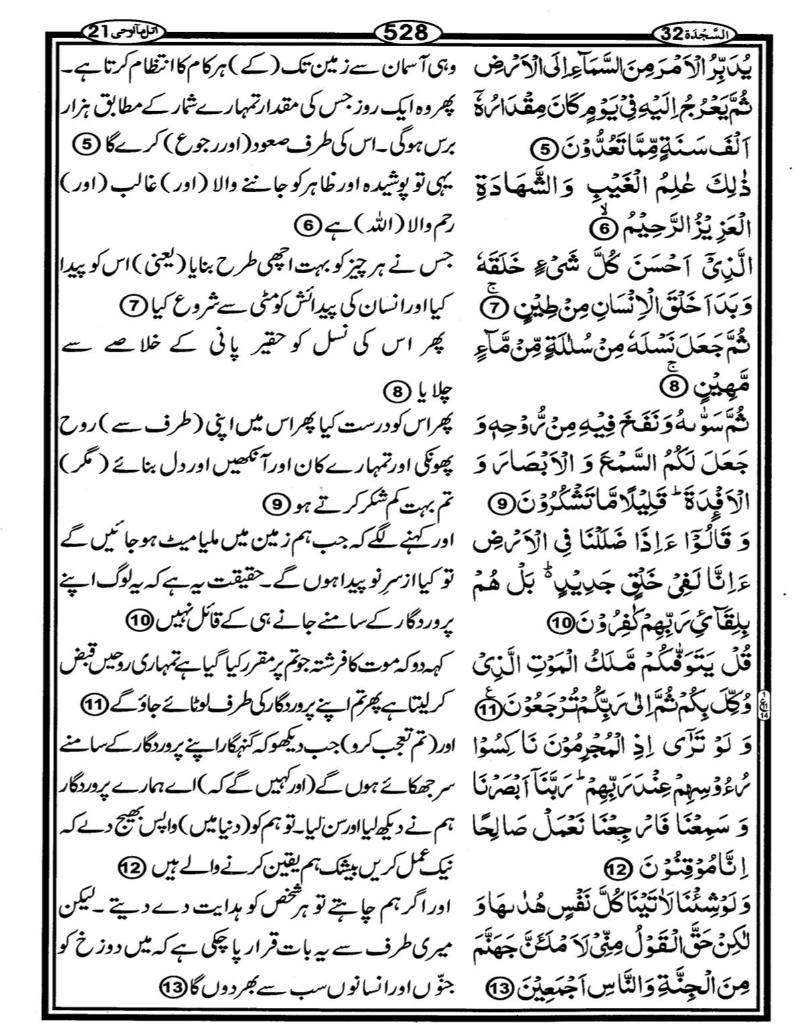 السَّجْدَة 32
528
اتل ما اوحی 21
يُدَبِّرُ الْاَمْرَ مِنَ السَّمَآءِ اِلَى الْاَرْضِ
ثُمَّ يَعْرُجُ اِلَيْهِ فِيْ يَوْمٍ كَانَ مِقْدَارُهٗٓ
اَلْفَ سَنَةٍ مِّمَّا تَعُدُّوْنَ 5
ذٰلِكَ عٰلِمُ الْغَيْبِ وَالشَّهَادَةِ
الْعَزِيْزُ الرَّحِيْمُ ۙ 6
الَّذِيْٓ اَحْسَنَ كُلَّ شَيْءٍ خَلَقَهٗ
وَبَدَاَ خَلْقَ الْاِنْسَانِ مِنْ طِيْنٍ ۚ 7
ثُمَّ جَعَلَ نَسْلَهٗ مِنْ سُلٰلَةٍ مِّنْ مَّآءٍ
مَّهِيْنٍ ۚ 8
ثُمَّ سَوّٰىهُ وَنَفَخَ فِيْهِ مِنْ رُّوْحِهٖ وَ
جَعَلَ لَكُمُ السَّمْعَ وَ الْاَبْصَارَ وَ
الْاَفْـِٕدَةَ ؕ قَلِيْلًا مَّا تَشْكُرُوْنَ 9
وَ قَالُوْٓا ءَاِذَا ضَلَلْنَا فِي الْاَرْضِ
ءَاِنَّا لَفِيْ خَلْقٍ جَدِيْدٍ ؕ بَلْ هُمْ
بِلِقَآئِ رَبِّهِمْ كٰفِرُوْنَ 10
قُلْ يَتَوَفّٰىكُمْ مَّلَكُ الْمَوْتِ الَّذِيْ
وُكِّلَ بِكُمْ ثُمَّ اِلٰى رَبِّكُمْ تُرْجَعُوْنَ ۧ 11
وَ لَوْ تَرٰٓى اِذِ الْمُجْرِمُوْنَ نَاكِسُوْا
رُءُوْسِهِمْ عِنْدَ رَبِّهِمْ ؕ رَبَّنَآ اَبْصَرْنَا
وَ سَمِعْنَا فَارْجِعْنَا نَعْمَلْ صَالِحًا
اِنَّا مُوْقِنُوْنَ 12
وَلَوْ شِئْنَا لَاٰتَيْنَا كُلَّ نَفْسٍ هُدٰىهَا وَ
لٰكِنْ حَقَّ الْقَوْلُ مِنِّيْ لَاَمْلَئَنَّ جَهَنَّمَ
مِنَ الْجِنَّةِ وَالنَّاسِ اَجْمَعِيْنَ 13
وہی آسمان سے زمین تک (کے) ہر کام کا انتظام کرتا ہے۔
پھر وہ ایک روز جس کی مقدار تمہارے شمار کے مطابق ہزار
برس ہوگی۔ اس کی طرف صعود (اور رجوع) کرے گا 5
یہی تو پوشیدہ اور ظاہر کو جاننے والا (اور) غالب (اور)
رحم والا (اللہ) ہے 6
جس نے ہر چیز کو بہت اچھی طرح بنایا (یعنی) اس کو پیدا
کیا اور انسان کی پیدائش کو مٹی سے شروع کیا 7
پھر اس کی نسل کو حقیر پانی کے خلاصے سے
چلایا 8
پھر اس کو درست کیا پھر اس میں اپنی (طرف سے) روح
پھونکی اور تمہارے کان اور آنکھیں اور دل بنائے (مگر)
تم بہت کم شکر کرتے ہو 9
اور کہنے لگے کہ جب ہم زمین میں ملیامیٹ ہو جائیں گے
تو کیا ازسرِنو پیدا ہوں گے۔ حقیقت یہ ہے کہ یہ لوگ اپنے
پروردگار کے سامنے جانے ہی کے قائل نہیں 10
کہہ دو کہ موت کا فرشتہ جو تم پر مقرر کیا گیا ہے تمہاری روحیں قبض
کر لیتا ہے پھر تم اپنے پروردگار کی طرف لوٹائے جاؤ گے 11
اور (تم تعجب کرو) جب دیکھو کہ گنہگار اپنے پروردگار کے سامنے
سر جھکائے ہوں گے (اور کہیں گے کہ) اے ہمارے پروردگار
ہم نے دیکھ لیا اور سن لیا۔ تو ہم کو (دنیا میں) واپس بھیج دے کہ
نیک عمل کریں بیشک ہم یقین کرنے والے ہیں 12
اور اگر ہم چاہتے تو ہر شخص کو ہدایت دے دیتے۔ لیکن
میری طرف سے یہ بات قرار پا چکی ہے کہ میں دوزخ کو
جنّوں اور انسانوں سب سے بھر دوں گا 13